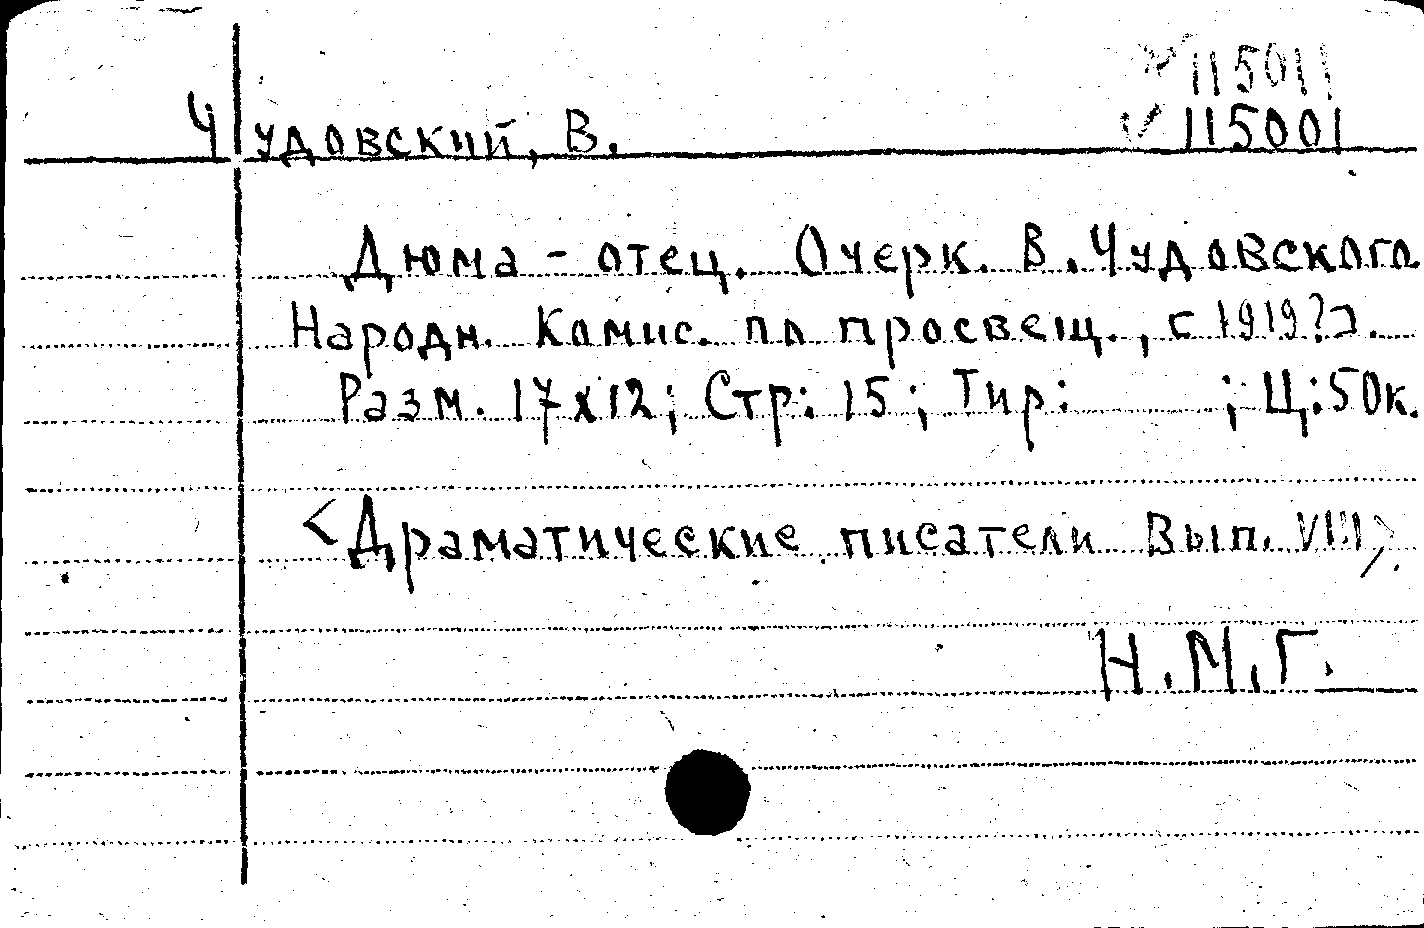 115011
Чудовский, В. 115001
Дюма - отец. Очерк. В. Чудовского.
Народн. Комис. по просвещ., [1919?].
Разм. 17х12; Стр: 15; Тир: ; Ц: 50к.
<Драматические писатели Вып. VIII>.
Н.М.Г.